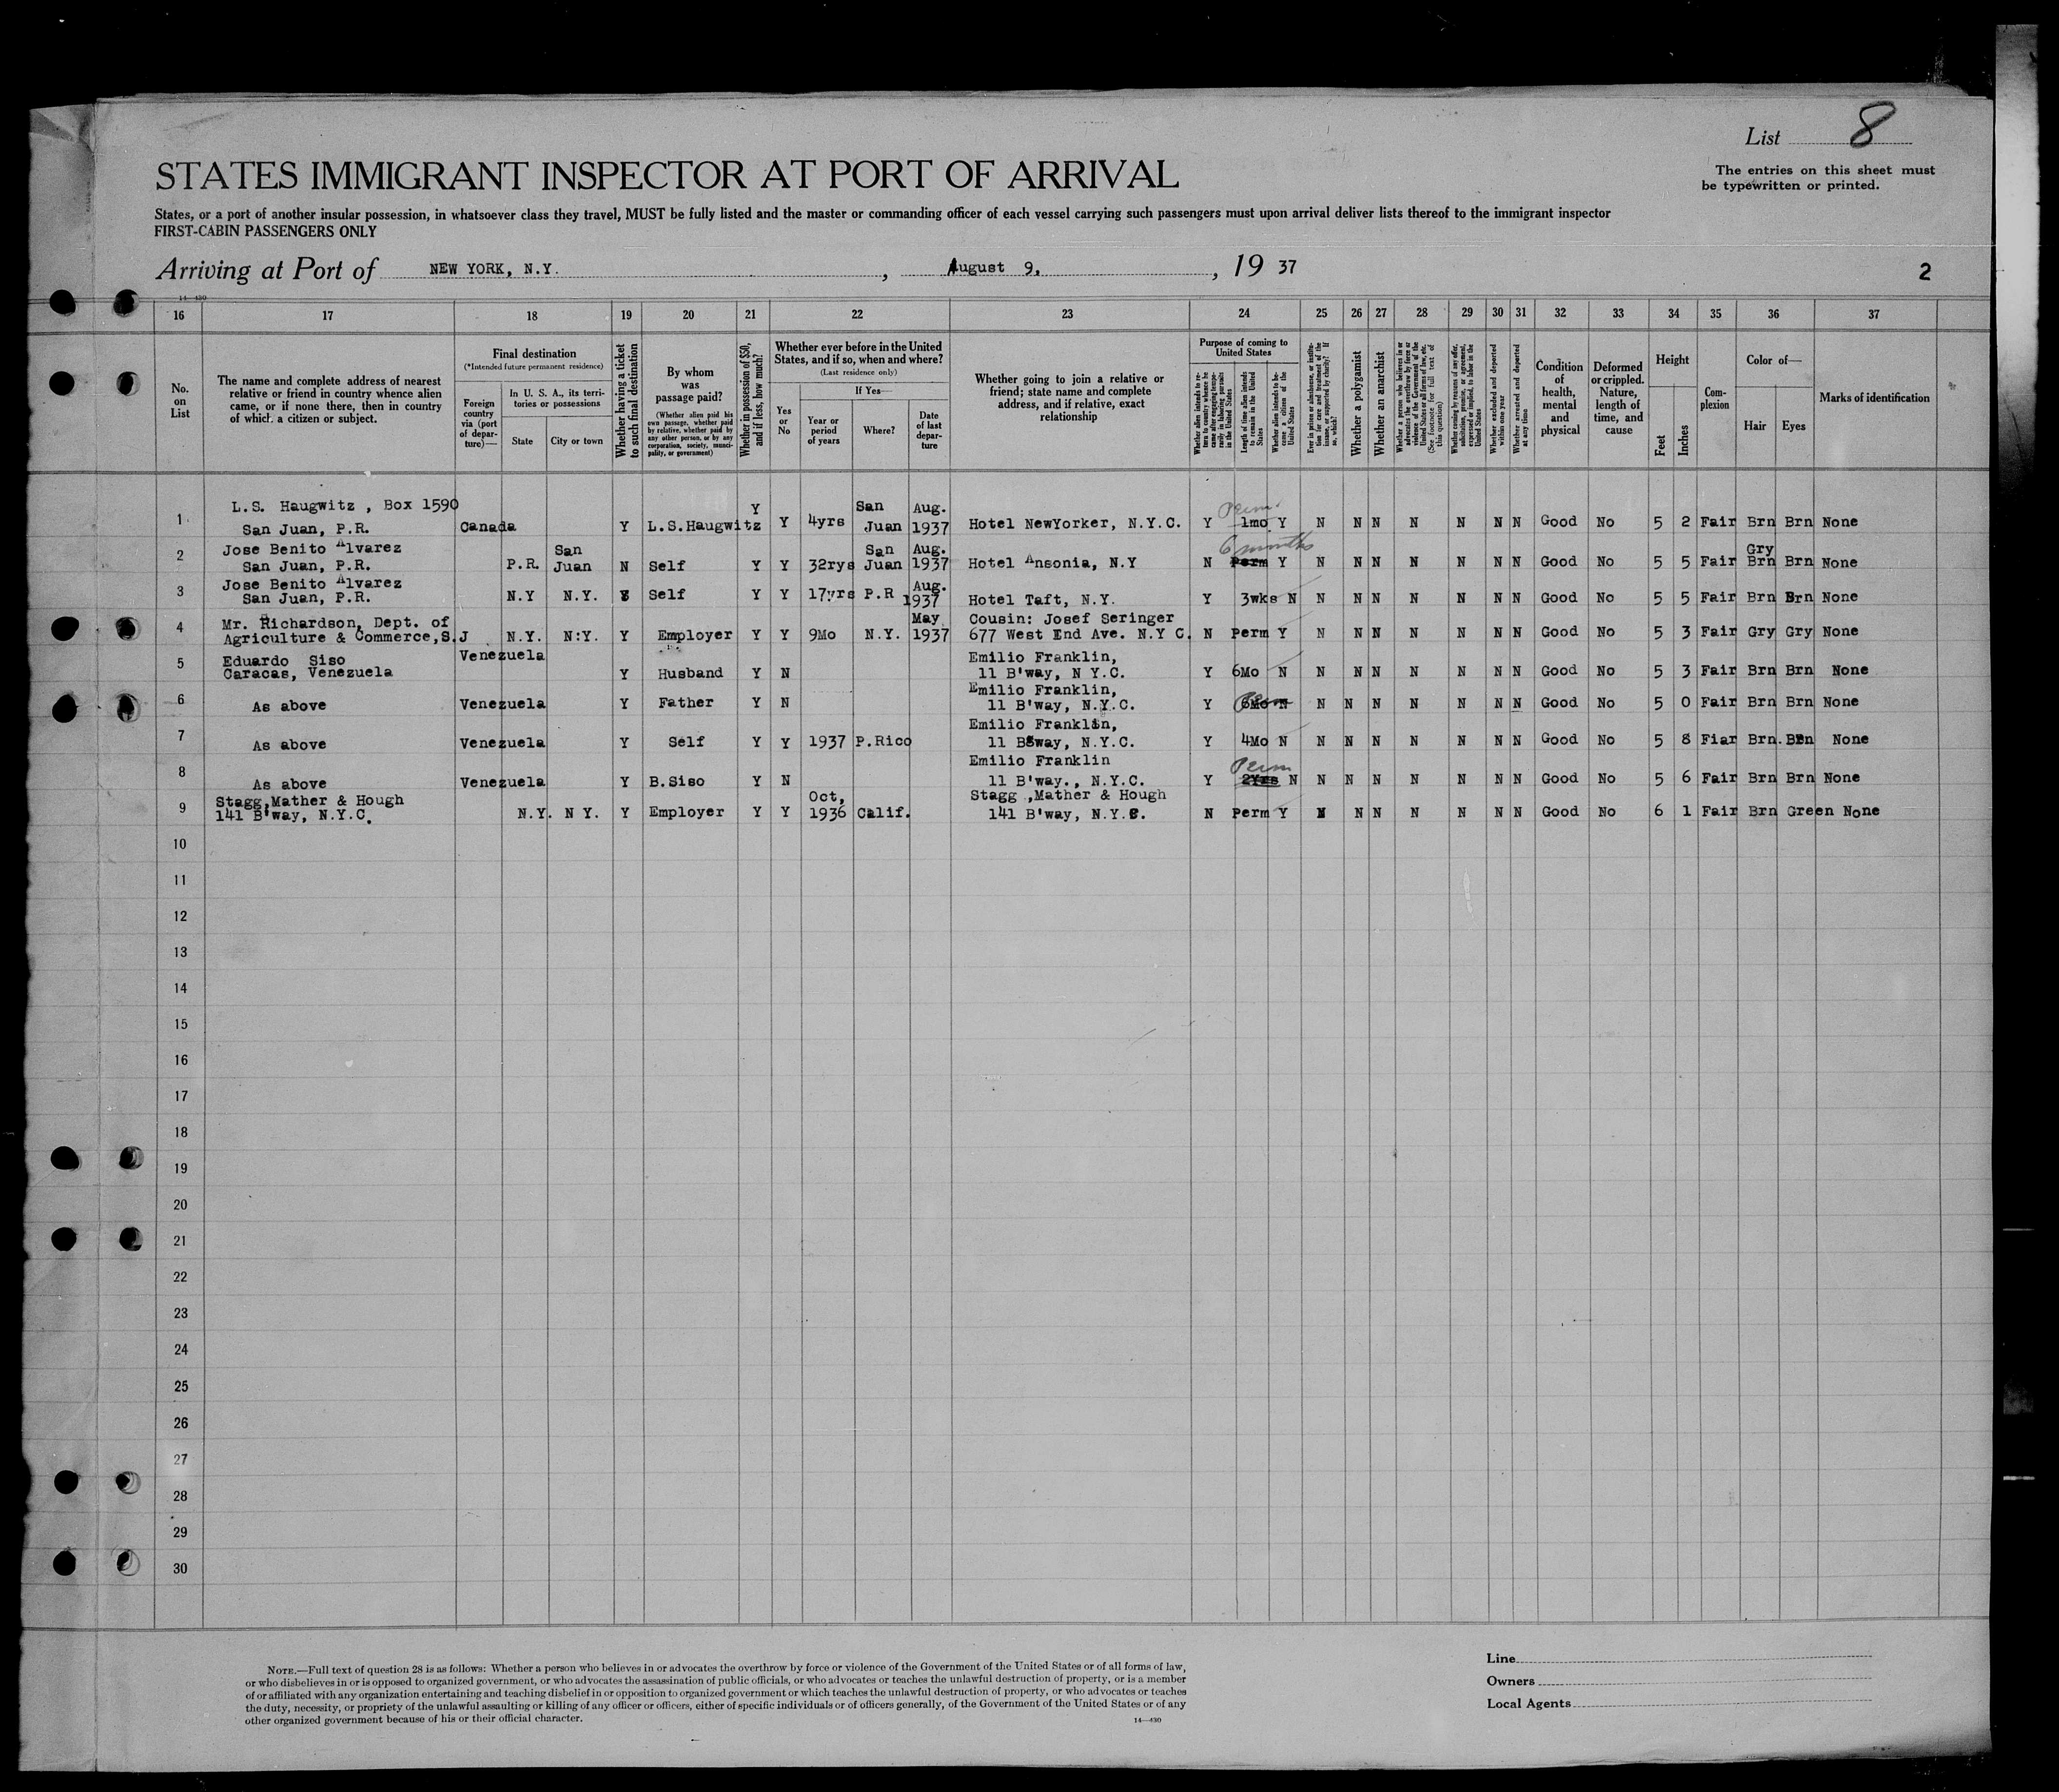 List 8
The entries on this sheet must
be typewritten or printed.
STATES IMMIGRANT INSPECTOR AT PORT OF ARRIVAL
States, or a port of another insular possession, in whatsoever class they travel, MUST be fully listed and the master or commanding officer of each vessel carrying such passengers must upon arrival deliver lists thereof to the immigrant inspector
FIRST-CABIN PASSENGERS ONLY
Arriving at Port of NEW YORK, N.Y. , August 9, , 19 37
2
14—430
16 17 18 19 20 21 22 23 24 25 26 27 28 29 30 31 32 33 34 35 36 37
No. on List
The name and complete address of nearest
relative or friend in country whence alien
came, or if none there, then in country
of which a citizen or subject.
Final destination
(*Intended future permanent residence)
Foreign country via (port of departure)—
In U. S. A., its territories or possessions
State
City or town
Whether having a ticket to such final destination
By whom was passage paid?
(Whether alien paid his own passage, whether paid by relative, whether paid by any other person, or by any corporation, society, municipality, or government)
Whether in possession of $50, and if less, how much?
Whether ever before in the United States, and if so, when and where?
(Last residence only)
Yes or No
If Yes—
Year or period of years
Where?
Date of last departure
Whether going to join a relative or
friend; state name and complete
address, and if relative, exact
relationship
Purpose of coming to United States
Whether alien intends to return to country whence he came after engaging temporarily in laboring pursuits in the United States
Length of time alien intends to remain in the United States
Whether alien intends to become a citizen of the United States
Ever in prison or almshouse, or institution for care and treatment of the insane, or supported by charity? If so, which?
Whether a polygamist
Whether an anarchist
Whether a person who believes in or advocates the overthrow by force or violence of the Government of the United States or all forms of law, etc. (See footnote for full text of this question)
Whether coming by reasons of any offer, solicitation, promise, or agreement, expressed or implied, to labor in the United States
Whether excluded and deported within one year
Whether arrested and deported at any time
Condition of health, mental and physical
Deformed or crippled. Nature, length of time, and cause
Height
Feet
Inches
Complexion
Color of—
Hair
Eyes
Marks of identification
L.S. Haugwitz , Box 1590 Y San Aug. Perm.
1 San Juan, P.R. Canada Y L.S.Haugwitz Y 4yrs Juan 1937 Hotel NewYorker, N.Y.C. Y 1mo Y N N N N N N N Good No 5 2 Fair Brn Brn None
Jose Benito Alvarez San San Aug. 6 months Gry
2 San Juan, P.R. P.R. Juan N Self Y Y 32rys Juan 1937 Hotel Ansonia, N.Y N Perm Y N N N N N N N Good No 5 5 Fair Brn Brn None
Jose Benito Alvarez Aug.
3 San Juan, P.R. N.Y N.Y. Self Y Y 17yrs P.R 1937 Hotel Taft, N.Y. Y 3wks N N N N N N N N Good No 5 5 Fair Brn Brn None
Mr. Richardson, Dept. of May Cousin: Josef Seringer
4 Agriculture & Commerce,S.J N.Y. N:Y. Y Employer Y Y 9Mo N.Y. 1937 677 West End Ave. N.Y C. N Perm Y N N N N N N N Good No 5 3 Fair Gry Gry None
Eduardo Siso Venezuela Emilio Franklin,
5 Caracas, Venezuela Y Husband Y N 11 B'way, N Y.C. Y 6Mo N N N N N N N N Good No 5 3 Fair Brn Brn None
Emilio Franklin,
6 As above Venezuela Y Father Y N 11 B'way, N.Y.C. Y 6Mo N N N N N N N N Good No 5 0 Fair Brn Brn None
Emilio Franklin,
7 As above Venezuela Y Self Y Y 1937 P.Rico 11 B'way, N.Y.C. Y 4Mo N N N N N N N N Good No 5 8 Fiar Brn. Brn None
Emilio Franklin Perm
8 As above Venezuela Y B.Siso Y N 11 B'way., N.Y.C. Y 2Yrs N N N N N N N N Good No 5 6 Fair Brn Brn None
Stagg,Mather & Hough Oct, Stagg ,Mather & Hough
9 141 B'way, N.Y.C. N.Y. N Y. Y Employer Y Y 1936 Calif. 141 B'way, N.Y.C. N Perm Y N N N N N N N Good No 6 1 Fair Brn Green None
10
11
12
13
14
15
16
17
18
19
20
21
22
23
24
25
26
27
28
29
30
NOTE.—Full text of question 28 is as follows: Whether a person who believes in or advocates the overthrow by force or violence of the Government of the United States or of all forms of law,
or who disbelieves in or is opposed to organized government, or who advocates the assassination of public officials, or who advocates or teaches the unlawful destruction of property, or is a member
of or affiliated with any organization entertaining and teaching disbelief in or opposition to organized government or which teaches the unlawful destruction of property, or who advocates or teaches
the duty, necessity, or propriety of the unlawful assaulting or killing of any officer or officers, either of specific individuals or of officers generally, of the Government of the United States or of any
other organized government because of his or their official character.
14—430
Line
Owners
Local Agents